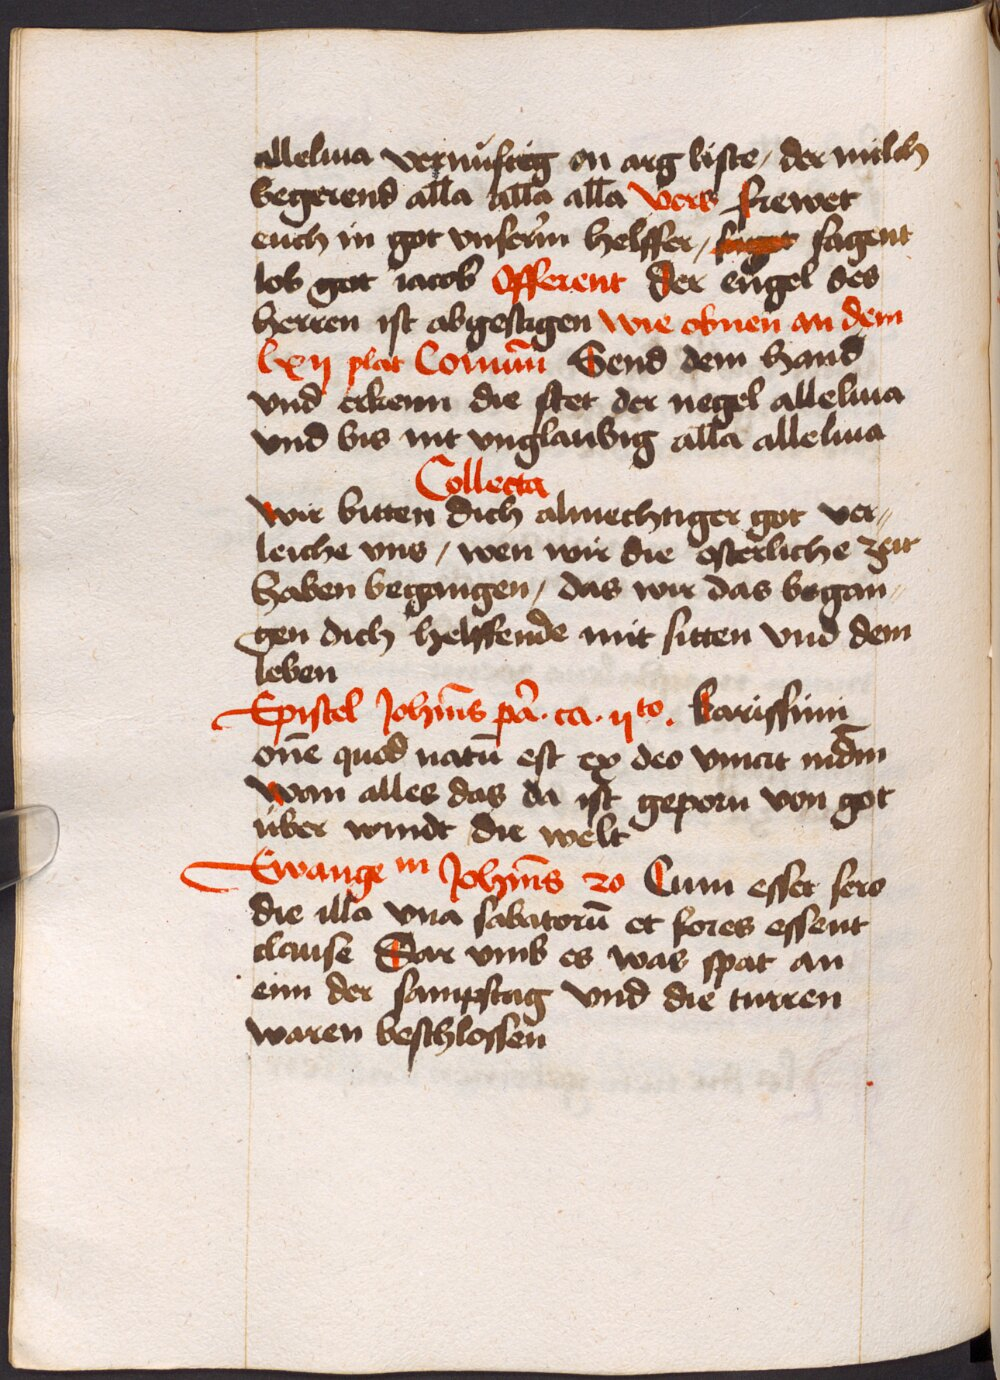 alleluia vernuͤfteg on arg liste / der milch
begerend all̄a all̄a all̄a Vers frewet
euch in got vnser̄m helffer / sagent
lob got iacob Offerent der engel des
herren ist abgestigen wie obnen an dem
lxij plat Comūm Send dein hand
vnd erkenn die stet der negel alleluia
vnd bis nit vnglaubig all̄a alleluia
Collecta
wir bitten dich almechtiger got ver„
leiche vns / wen wir die osterliche zeit
haben begangen / das wir das began„
gen dich helffende mit sitten vnd dem
leben
Epistel Joh̄nis pā . ca . ijto . karissimi
om̄e quod natū est ex deo vincit mdm̄
wan alles das da ist geporn von got
uͤber windt die welt
Ewange m Joh̄nis 20 Cum esset sero
die illa vna sabatorū et fores essent
clause Dar vmb es was spat an
eim der sampstag vnd die turren
waren beschlossen